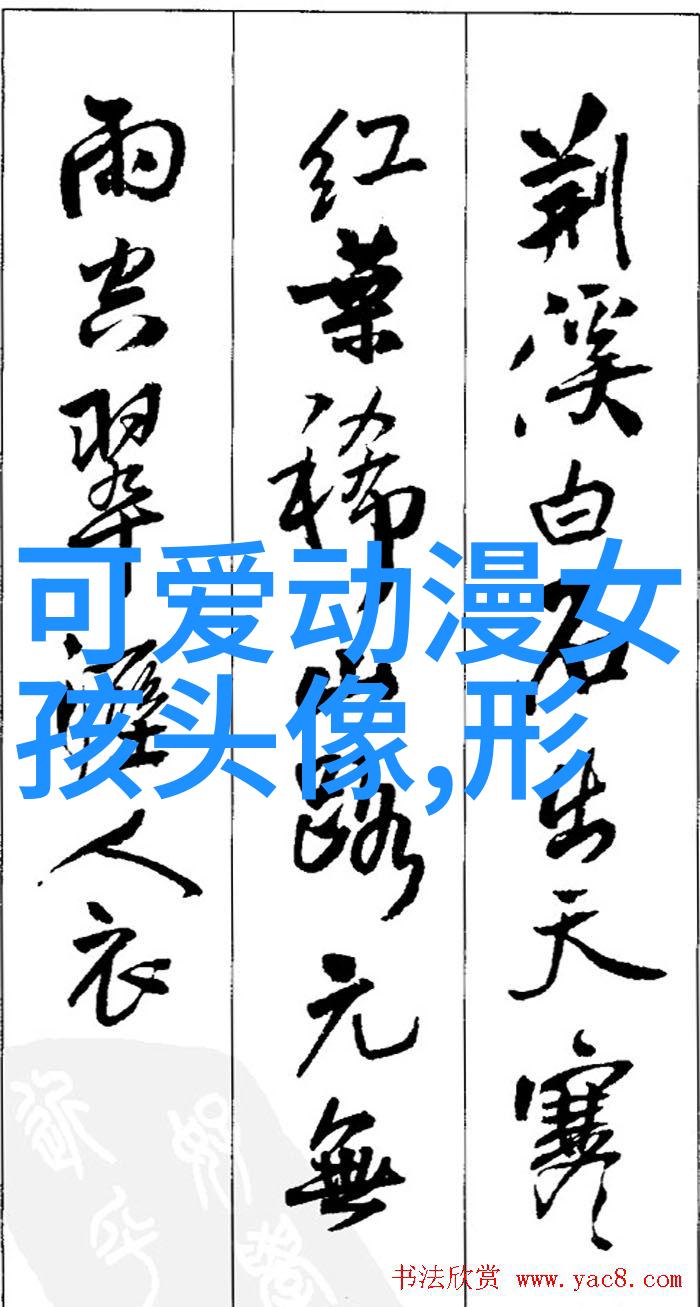 荆溪白石出天寒
红葉稀山路元無
雨空翠濕人衣
可爱动漫女
孩头像,形
书法欣赏 www.yac8.com